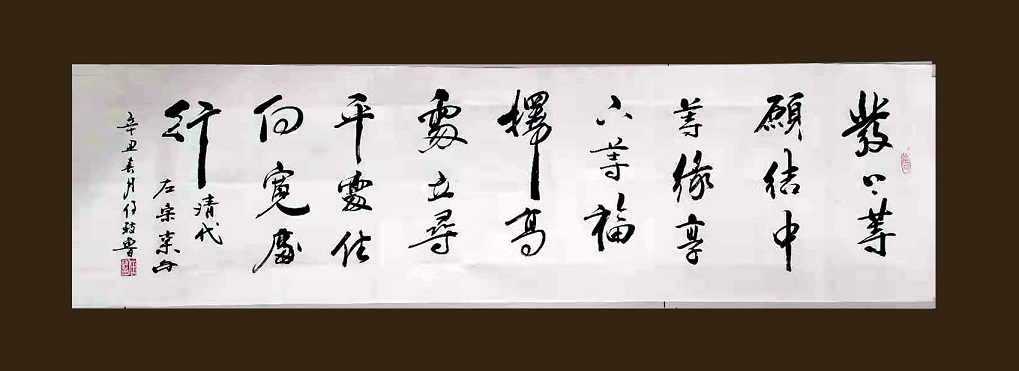 發上等
願结中
等缘享
下等福
擇高
處立尋
平處住
向寬處
行
清代
左宗棠句
辛丑春月任致鲁